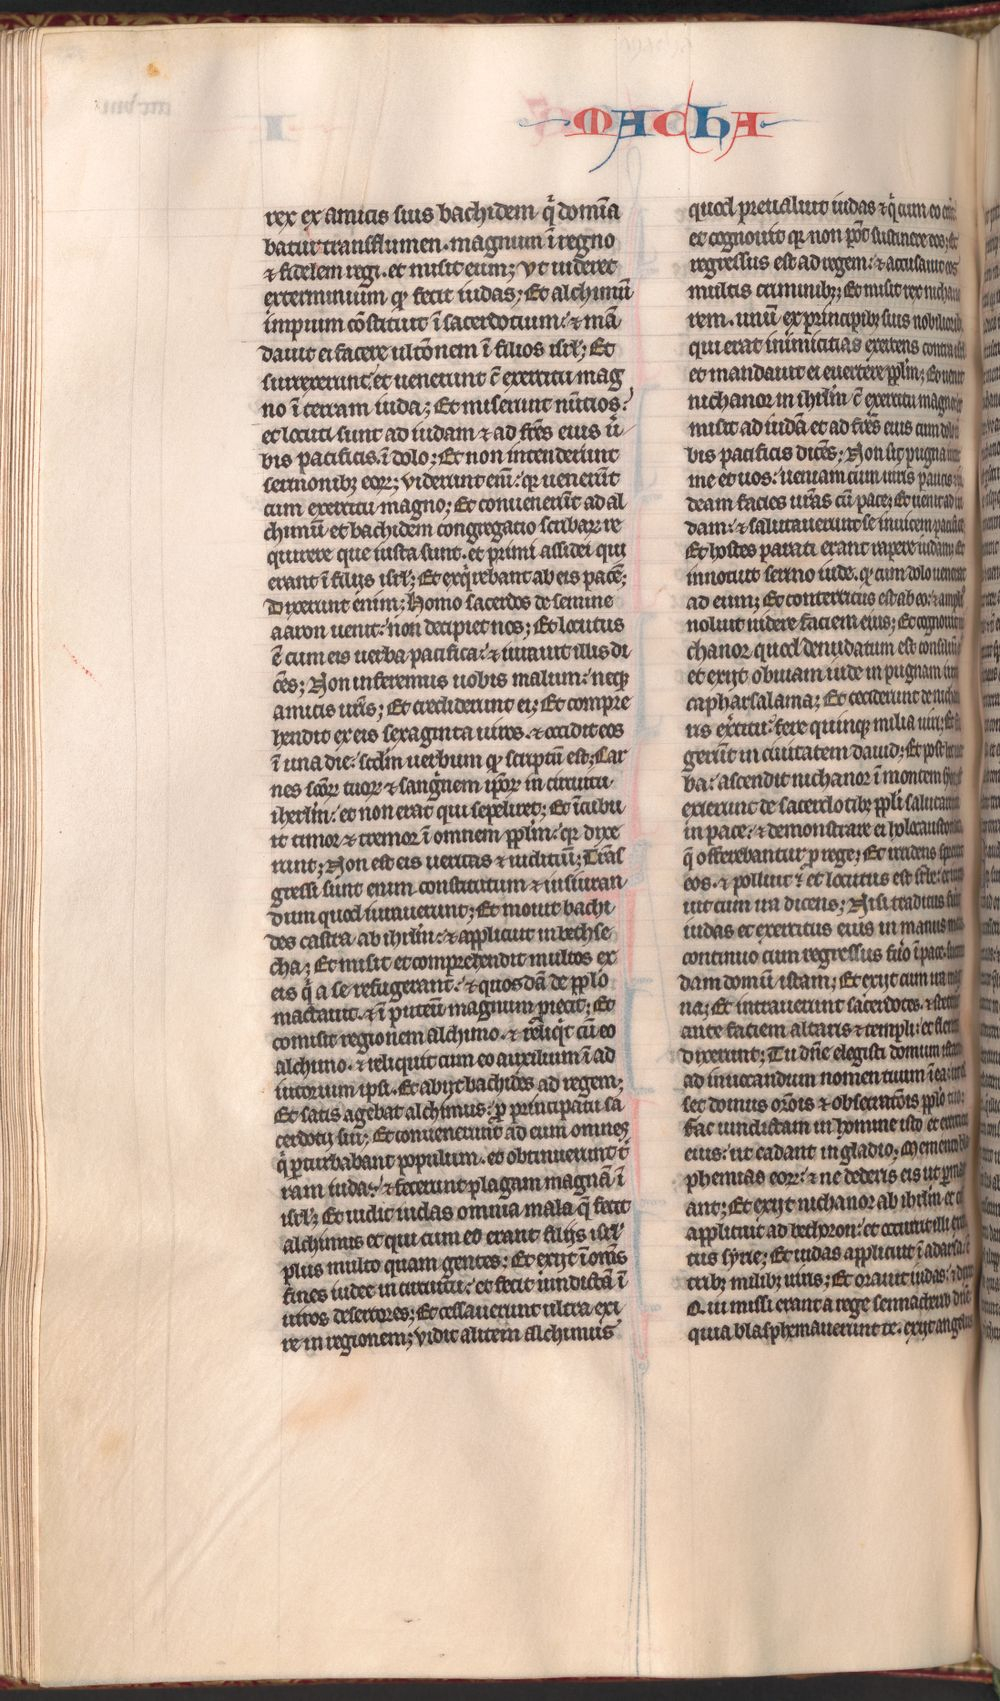 MACHA
rex ex amicis suis bachidem q̄ domīa
batur trans flumen. magnum ī regno
⁊ fidelem regi. et misit eum; Vt uideret
exterminium qͦ fecit iudas; Et alchimū
impium cōstituit ī sacerdotium: ⁊ mā
dauit ei facere ultōnem ī filios isrl̄; Et
surrexerunt et uenerunt c̄ exercitu mag
no ī terram iuda; Et miserunt nūtios:
et locuti sunt ad iudam ⁊ ad fr̄es eius ū
bis pacificis ī dolo; Et non intenderunt
sermonibꝫ eoꝝ; Viderunt em̄: qꝛ uenerūt
cum exercitu magno; Et conuenerūt ad al
chimū et bachidem congregatio scribaꝝ re
quirere que iusta sunt. et primi assidei qui
erant ī filijs isrl̄; Et exq̄rebant ab eis pacē;
Dixerunt enim; Homo sacerdos de semine
aaron uenit: non decipiet nos; Et locutus
ē cum eis uerba pacifica: ⁊ iurauit illis di
cēs; Non inferemus uobis malum: neqꝫ
amicis ur̄is; Et crediderunt ei; Et compre
hendit ex eis sexaginta uiros. ⁊ occidit eos
ī una die: scd̄m uerbum qͦ scriptū est; Car
nes scōꝝ tuoꝝ ⁊ sanguinem ipōꝝ in circuitu
iherl̄m: et non erat qui sepeliret; Et īcubu
it timor ⁊ tremor ī omnem ppl̄m: qꝛ dixe
runt; Non est eis ueritas ⁊ iudiciū; Trās
gressi sunt enim constitutum ⁊ iusiuran
dum quod iurauerunt; Et mouit bachi
des castra ab ihrl̄m: ⁊ applicuit in bethse
cha; Et misit et comprehendit multos ex
eis q̄ a se refugerant: ⁊ quosdā de ppl̄o
mactauit. ⁊ ī puteū magnum piecit; Et
comisit regionem alchimo. ⁊ reliqt cū eo
alchimo. ⁊ reliquit cum eo auxilium ī ad
iutorium ipsi. Et abijt bachides ad regem;
Et satis agebat alchimus: ꝓ principatu sa
cerdotij sui; Et conuenerunt ad eum omnes
q̄ ꝑturbabant populum. et obtinuerunt t̄
ram iuda: ⁊ fecerunt plagam magnā ī
isrl̄; Et uidit iudas omnia mala q̄ fecit
alchimus et qui cum eo erant filijs isrl̄
plus multo quam gentes; Et exijt ī om̄s
fines iudee in circuitu: et fecit uindictā ī
uiros desertores; Et cessauerunt ultra exi
re in regionem; Vidit autem alchimus
quod preualuit iudas ⁊ q̄ cum eo
et cognouit qꝛ non pōt sustinere eos; Et
regressus est ad regem: ⁊ accusauit eos
multis criminibꝫ; Et misit rex nicha
rem. unū ex principibꝫ suis nobilioribꝫ
qui erat inimicitias exercens contra isrl̄
et mandauit ei euertere ppl̄m; Et uenit
nichanor in ihrl̄m c̄ exercitu magno
misit ad iudā et ad fr̄es eius cum dolo
bis pacificis dicēs; Non sit pugna int̄
me et uos: ueniam cum uiris paucis
deam facies ur̄as cū pace; Et uenit ad iu
dam: ⁊ salutauerunt se inuicem pacifice
Et hostes parati erant rapere iudam; Et
innotuit sermo iude. qͦ cum dolo uenerat
ad eum; Et conterritus est ab eo: ⁊ ampli
noluit uidere faciem eius; Et cognouit ni
chanor quod denudatum est consiliū
et exijt obuiam iude in pugnam
capharsalama; Et ceciderunt de nicha
ris exercitu: fere quinqꝫ milia uiri;
gerūt in ciuitatem dauid; Et post
ba: ascendit nichanor ī montem
exierunt de sacerdotibꝫ ppl̄i
in pace: ⁊ demonstrare ei holocausto
q̄ offerebantur ꝓ rege; Et irridens
eos. ⁊ polluit: et locutus est
uit cum ira dicens; Nisi traditus
iudas et exercitus eius in manus
continuo cum regressus fūo ī pace
dam domū istam; Et exijt cum ira mag
na; Et intrauerunt sacerdotes. ⁊
ante faciem altaris ⁊ templi: et
dixerunt; Tu dn̄e elegisti domum
ad inuocandum nomen tuum ī ea:
set domus orōis ⁊ obsecratōis ppl̄o tuo:
Fac uindictam in homine isto et
eius: ut cadant in gladio; Memento
phemias eoꝝ: ⁊ ne dederis eis ut ꝑman
ant; Et exijt nichanor ab ihrl̄m et
applicuit ad bethoron: et occurrit illi
tus syrie; Et iudas applicuit ī adarsa
tribꝫ milibꝫ uiris; Et orauit iudas: ⁊
Qui missi erant a rege sennacherib dn̄e
quia blasphemauerunt te. exijt angelus